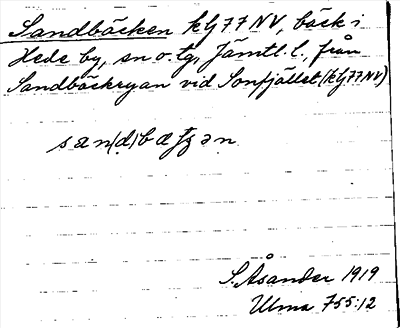 Sandbäcken klj77NV, bäck i
Hede by, sn o. tg, Jämtl. l., från
Sandbäckryan vid Sonfjället (klj77NV)
S. Åsander 1919
Ulma 755:12